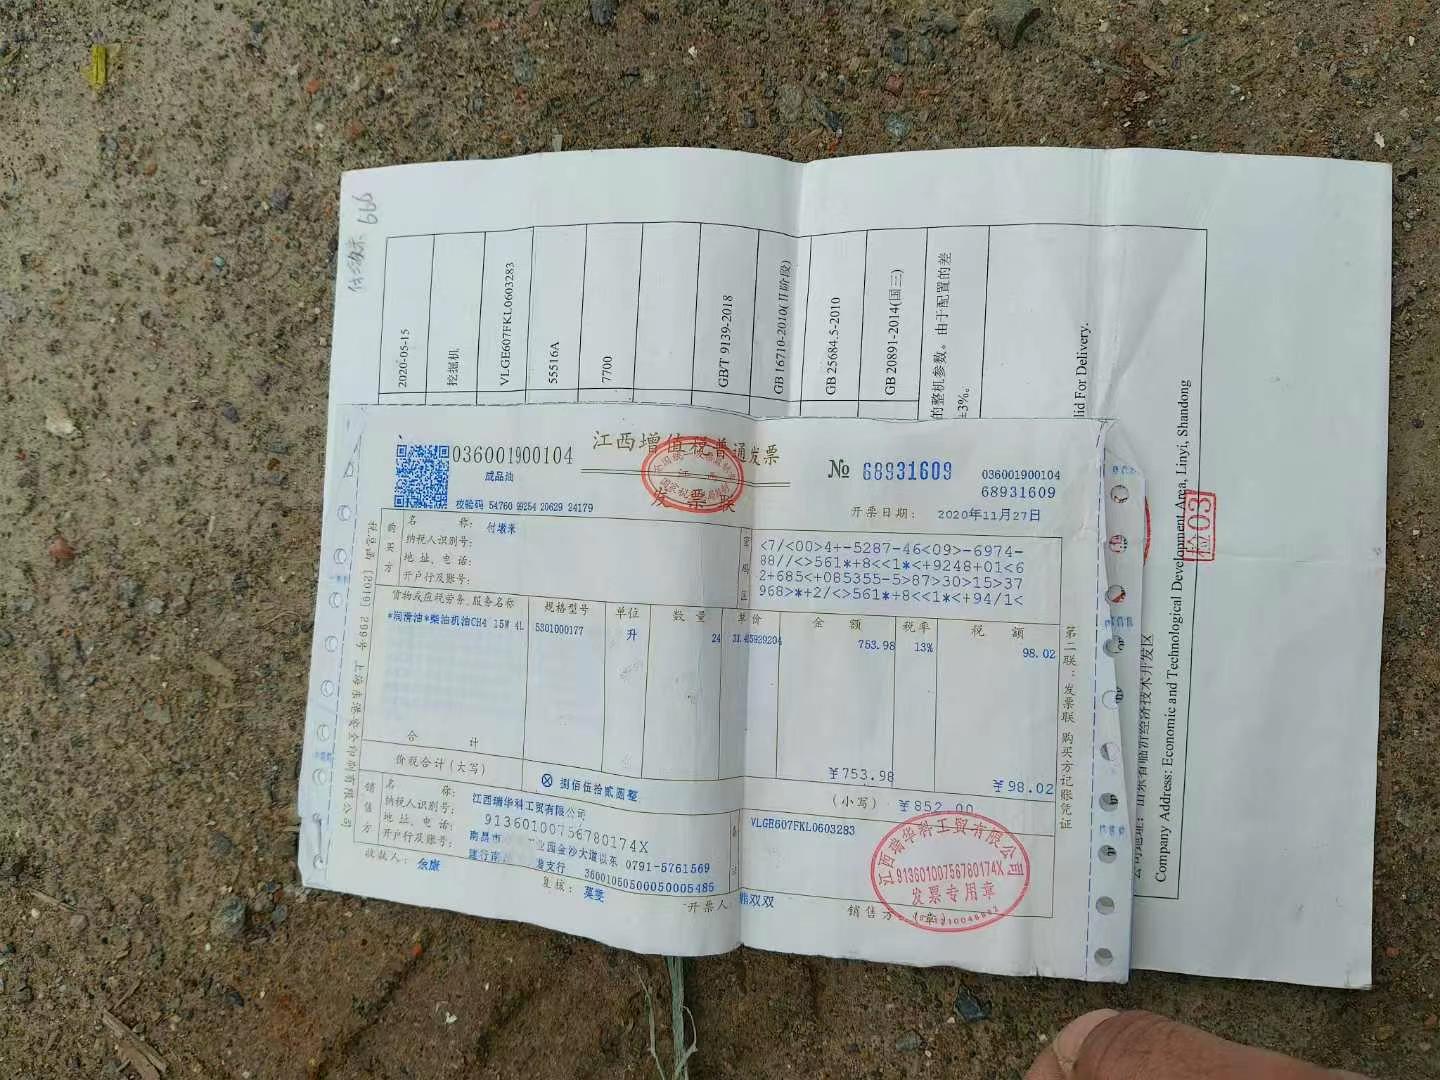 2020-05-15
挖掘机
VLGE607FKL0603283
55516A
7700
GB/T 9139-2018
GB 16710-2010(II阶段)
GB 25684.5-2010
GB 20891-2014(国三)
的整机参数。由于配置的差
±3%。
lid For Delivery.
Company Address: Economic and Technological Development Area, Linyi, Shandong
检03
036001900104
江西增值税普通发票
发票联
№ 68931609
036001900104
68931609
成品油
校验码 54760 99254 20629 24179
开票日期： 2020年11月27日
购买方
名 称： 付墩来
纳税人识别号：
地址、电话：
开户行及账号：
<7/<00>4+-5287-46<09>-6974-
88//<>561*+8<<1*<+9248+01<6
2+685<+085355-5>87>30>15>37
968>*+2/<>561*+8<<1*<+94/1<
货物或应税劳务、服务名称 规格型号 单位 数量 单价 金额 税率 税额
*润滑油*柴油机油CH4 15W 4L 5301000177 升 24 753.98 13% 98.02
合 计 ¥753.98 ¥98.02
价税合计(大写) ⊗ 捌佰伍拾贰圆整 (小写) ¥852.00
销售方
名 称： 江西瑞华科工贸有限公司
纳税人识别号： 91360100756780174X
地址、电话： 南昌市 业园金沙大道以东 0791-5761569
开户行及账号： 建行南 支行 36001050500050005485
VLGE607FKL0603283
收款人： 余康 复核： 开票人： 双双 销售方：(章)
江西瑞华科工贸有限公司
91360100756780174X
发票专用章
第二联：发票联 购买方记账凭证